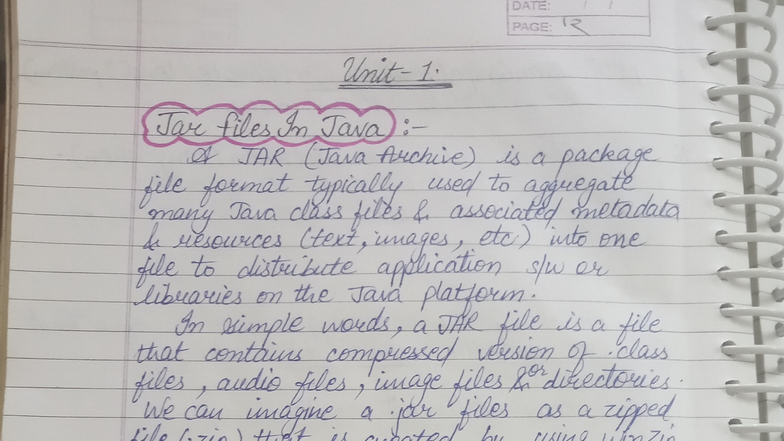 DATE: / /
PAGE: 12
Unit-1.
Jar files In Java :-
A JAR (Java Archive) is a package
file format typically used to aggregate
many Java class files & associated metadata
& resources (text, images, etc) into one
file to distribute application s/w or
libraries on the Java platform.
In simple words, a JAR file is a file
that contains compressed version of .class
files, audio files, image files & or directories.
We can imagine a .jar files as a zipped
file (.zip) that is created by using WinZip